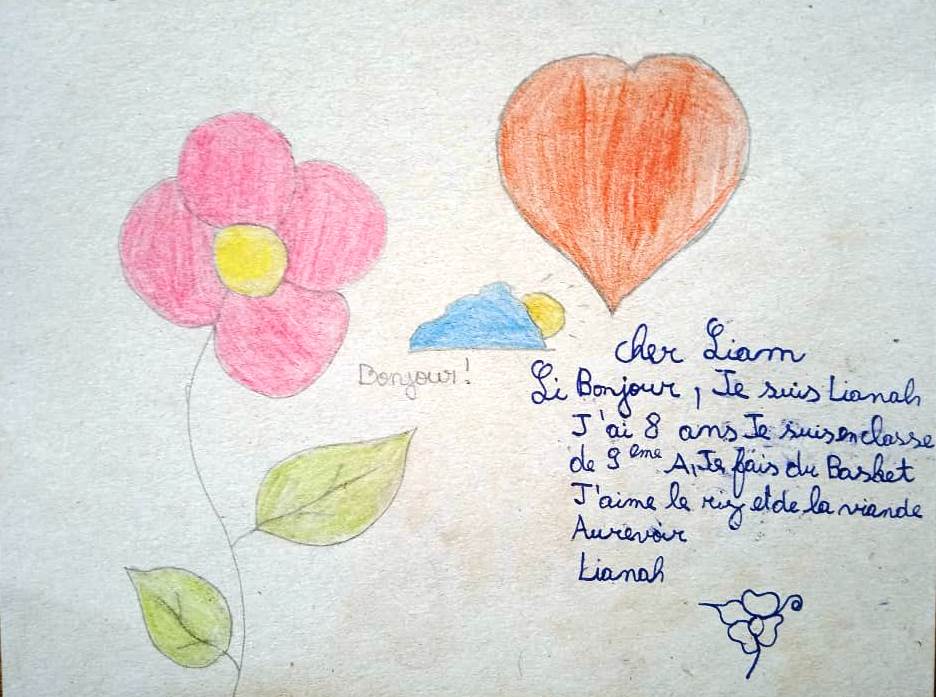 Bonjour!
cher Liam
Li Bonjour, Je suis Lianah
J'ai 8 ans Je suis en classe
de 9ème A, Je fais du Basket
J'aime le riz et de la viande
Aurevoir
Lianah